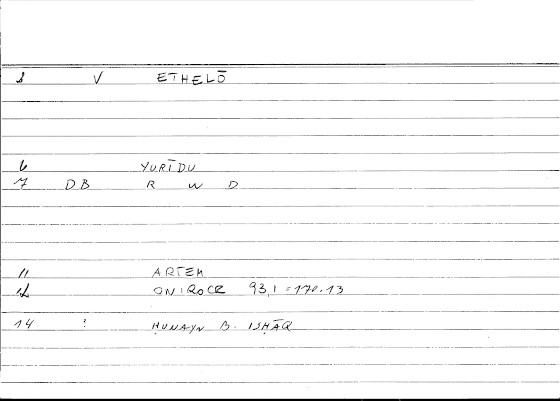 1 V ETHELŌ
6 YURĪDU
7 DB R W D
11 ARTEM
12 ONIROCR 93,1 = 170.13
14 : ḤUNAYN B. ISḤĀQ